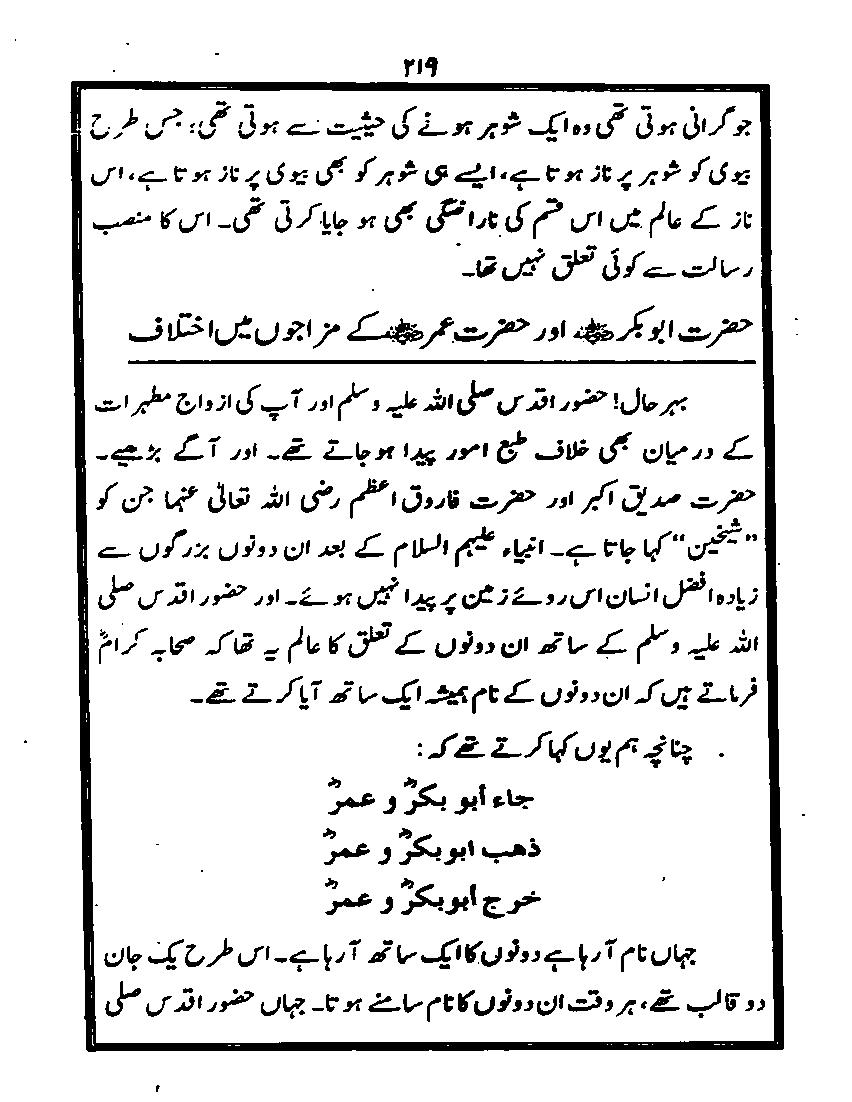 ۲۱۹
جو گرانی ہوتی تھی وہ ایک شوہر ہونے کی حیثیت سے ہوتی تھی؛ جس طرح
بیوی کو شوہر پر ناز ہوتا ہے، ایسے ہی شوہر کو بھی بیوی پر ناز ہوتا ہے، اس
ناز کے عالم میں اس قسم کی ناراضگی بھی ہو جایا کرتی تھی۔ اس کا منصب
رسالت سے کوئی تعلق نہیں تھا۔
حضرت ابوبکر ﷛ اور حضرت عمر ﷛ کے مزاجوں میں اختلاف
بہرحال! حضور اقدس صلی اللہ علیہ وسلم اور آپ کی ازواج مطہرات
کے درمیان بھی خلاف طبع امور پیدا ہو جاتے تھے۔ اور آگے بڑھیے۔
حضرت صدیق اکبر اور حضرت فاروق اعظم رضی اللہ تعالیٰ عنہما جن کو
”شیخین“ کہا جاتا ہے۔ انبیاء علیہم السلام کے بعد ان دونوں بزرگوں سے
زیادہ افضل انسان اس روئے زمین پر پیدا نہیں ہوئے۔ اور حضور اقدس صلی
اللہ علیہ وسلم کے ساتھ ان دونوں کے تعلق کا عالم یہ تھا کہ صحابہ کرامؓ
فرماتے ہیں کہ ان دونوں کے نام ہمیشہ ایک ساتھ آیا کرتے تھے۔
چنانچہ ہم یوں کہا کرتے تھے کہ:
جاء أبو بکرؓ و عمرؓ
ذهب ابوبکرؓ و عمرؓ
خرج أبوبکرؓ و عمرؓ
جہاں نام آ رہا ہے دونوں کا ایک ساتھ آ رہا ہے۔ اس طرح یک جان
دو قالب تھے، ہر وقت ان دونوں کا نام سامنے ہوتا۔ جہاں حضور اقدس صلی